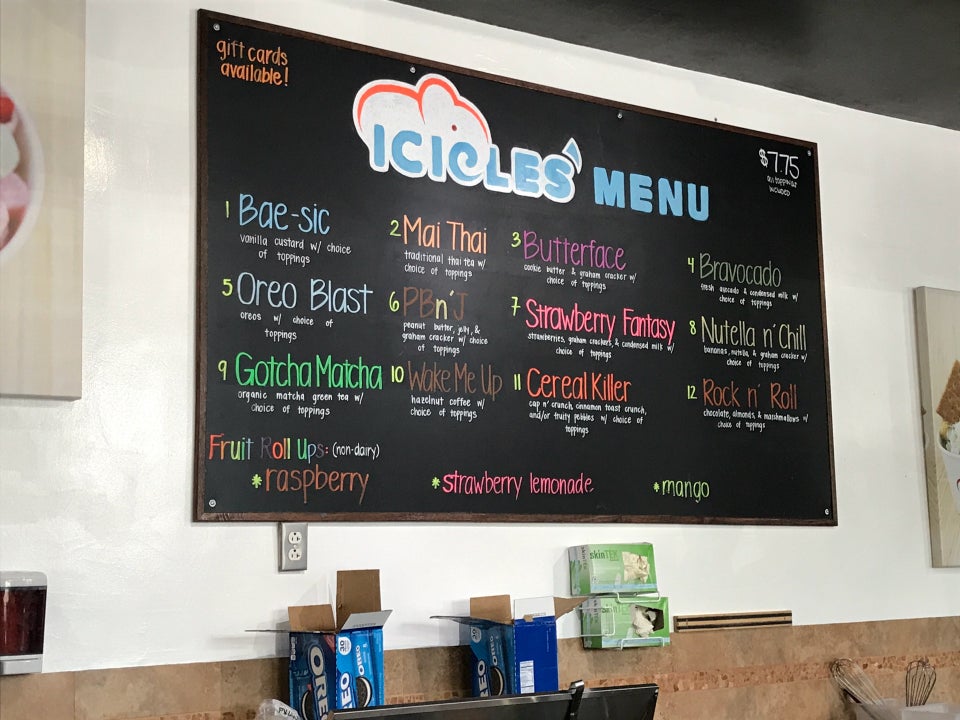 gift cards
available!
ICICLES' MENU
$7.75
all toppings
included
1 Bae-sic
vanilla custard w/ choice
of toppings
2 Mai Thai
traditional thai tea w/
choice of toppings
3 Butterface
cookie butter & graham cracker w/
choice of toppings
4 Bravocado
fresh avocado & condensed milk w/
choice of toppings
5 Oreo Blast
oreos w/ choice of
toppings
6 PBn'J
peanut butter, jelly, &
graham cracker w/ choice
of toppings
7 Strawberry Fantasy
strawberries, graham crackers, & condensed milk w/
choice of toppings
8 Nutella n' Chill
bananas, nutella, & graham cracker w/
choice of toppings
9 Gotcha Matcha
organic matcha green tea w/
choice of toppings
10 Wake Me Up
hazelnut coffee w/
choice of toppings
11 Cereal Killer
cap n' crunch, cinnamon toast crunch,
and/or fruity pebbles w/ choice of
toppings
12 Rock n' Roll
chocolate, almonds, & marshmallows w/
choice of toppings
Fruit Roll Ups: (non-dairy)
*raspberry
*strawberry lemonade
*mango
skinTEK
OREO
OREO